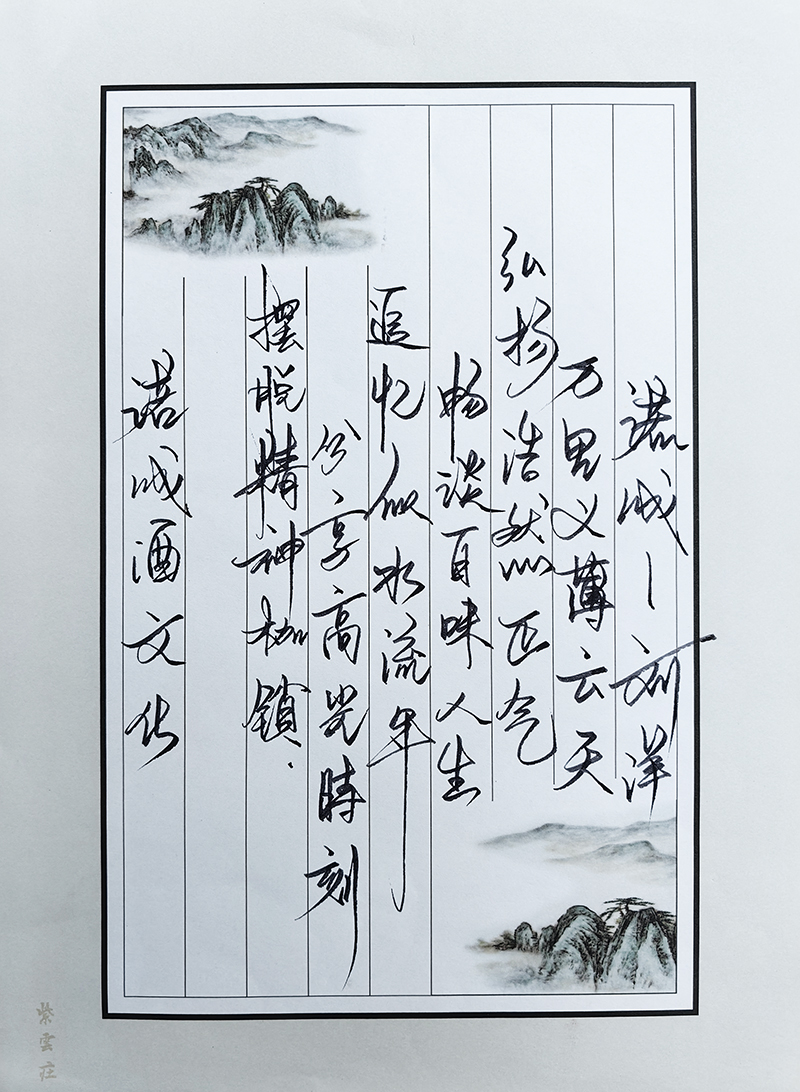 诺成一刘洋
万里义薄云天
弘扬浩然正气
畅谈百味人生
追忆似水流年
分享高光時刻
摆脱精神枷鎖.
诺成酒文化
紫雲莊